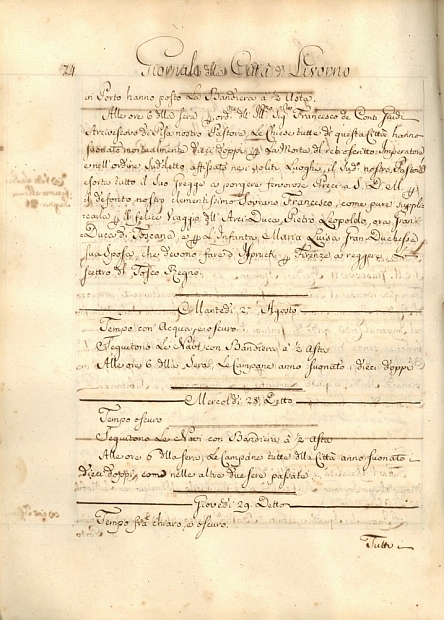 74 Giornale della Città di Livorno
in Porto hanno posto La Bandiera à ½ Asta.
Alle ore 6 della sera ord. dell' Ill. Sig. Francesco de Conti Guidi
Arcivescovo di Pisa nostro Pastore, Le Chiese tutte di questa Città hanno
suonato mortualmente dieci doppi La Morte del retroscritto Imperatore
e nell' ordine Suddetto, affissato nei soliti Luoghi, il Sud. nostro Pastore
esorta tutto il Suo Gregge a porgere fervorose Preci a S. D. M.
il defonto nostro clementissimo Sovrano Francesco, come pure supplicarla
il felice Viaggio dell' Arci-Duca Pietro Leopoldo, ora Gran
Duca di Toscana, e L'Infanta Maria Luisa Gran-Duchessa
sua Sposa, che devono fare d' Ispruch Firenze a reggere Lo
scettro del Tosco Regno.
Martedì 27 Agosto
Tempo con Acqua, pe oscuro
Seguitono Le Navi con Bandiera à ½ Asta
Alle ore 6 della Sera, Le Campane anno suonato i dieci doppi
Mercoldì 28 Detto
Tempo oscuro
Seguitono Le Navi con Bandiera à ½ Asta
Alle ore 6 della sera, Le Campane tutte della Città anno suonato i
dieci doppi, come nelle altre due sere passate
Giovedì 29 Detto
Tempo frà chiaro, e oscuro.
Tutti